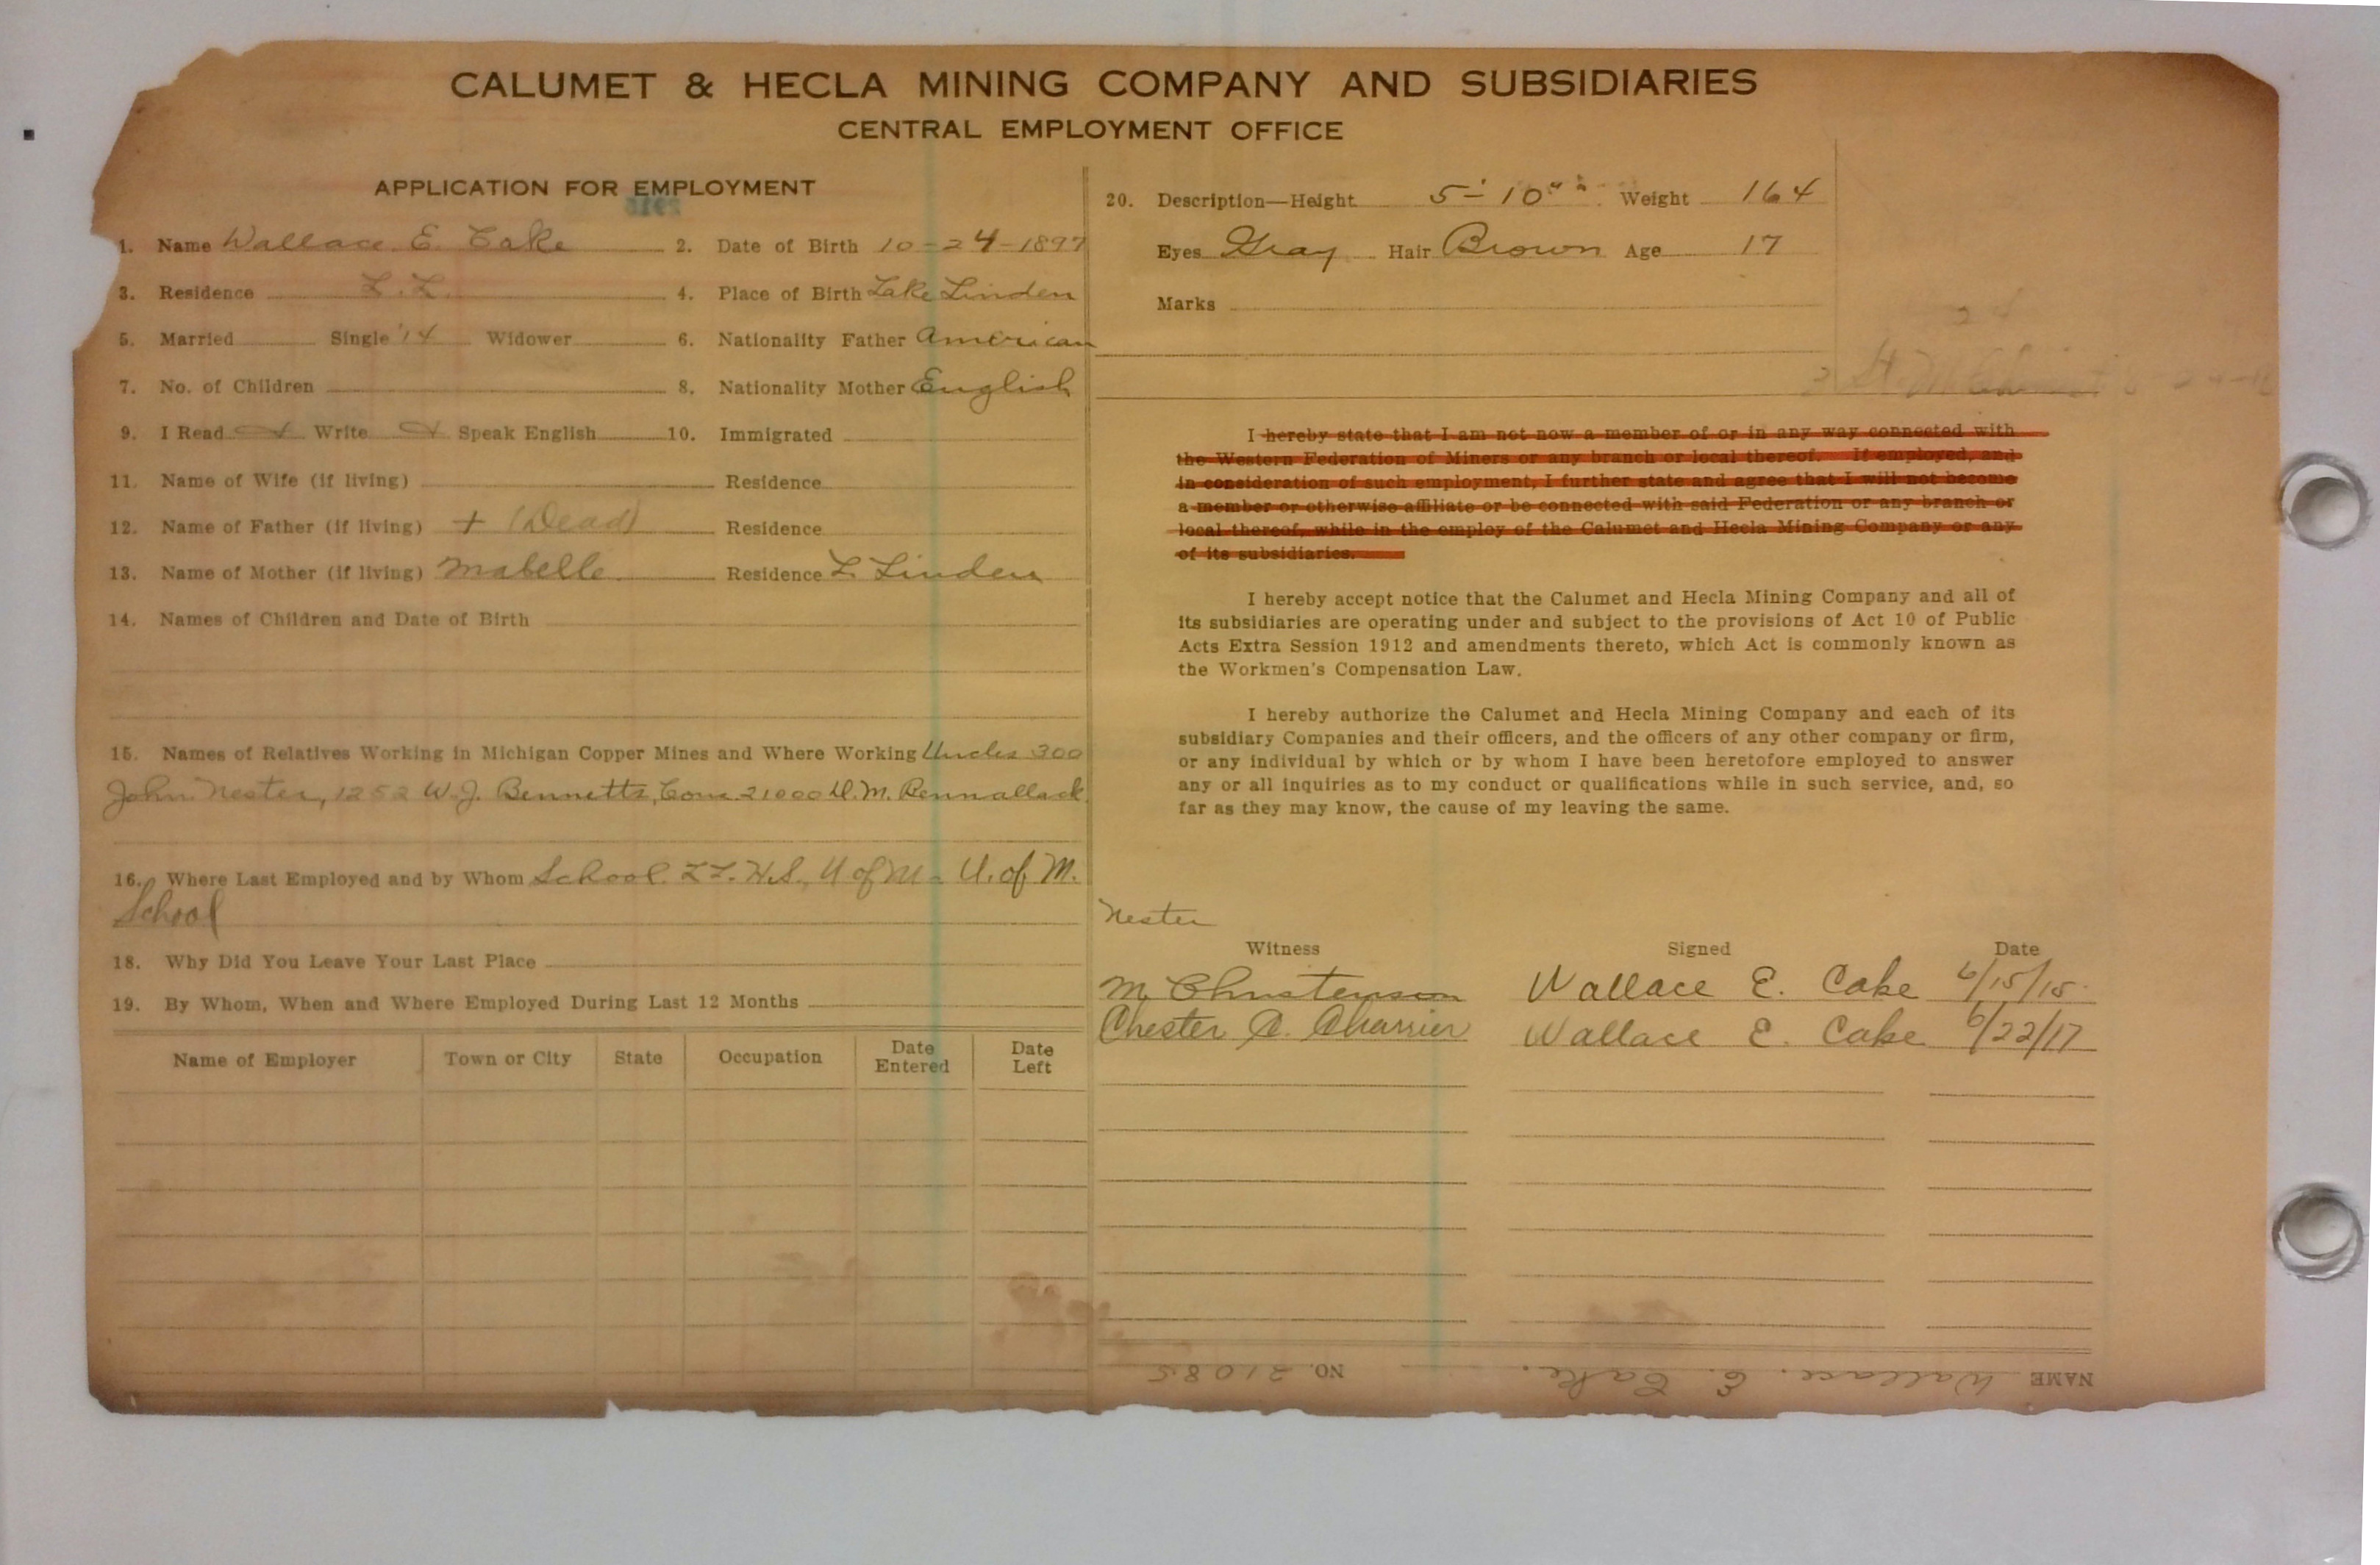 CALUMET & HECLA MINING COMPANY AND SUBSIDIARIES
CENTRAL EMPLOYMENT OFFICE
APPLICATION FOR EMPLOYMENT
1. Name Wallace E. Cake 2. Date of Birth 10-24-1897
3. Residence L.L. 4. Place of Birth Lake Linden
5. Married Single '14 Widower 6. Nationality Father American
7. No. of Children 8. Nationality Mother English
9. I Read Write Speak English 10. Immigrated
11. Name of Wife (if living) Residence
12. Name of Father (if living) + (Dead) Residence
13. Name of Mother (if living) Mabelle Residence L. Linden
14. Names of Children and Date of Birth
15. Names of Relatives Working in Michigan Copper Mines and Where Working Uncles 300
John Nester, 1252 W.J. Bennetts, Com. 21000
16. Where Last Employed and by Whom School. L.L. H.S., U of M - U. of M.
School
18. Why Did You Leave Your Last Place
19. By Whom, When and Where Employed During Last 12 Months
Name of Employer Town or City State Occupation Date Entered Date Left
20. Description—Height 5'-10" Weight 164
Eyes Gray Hair Brown Age 17
Marks
24
I hereby state that I am not now a member of or in any way connected with
the Western Federation of Miners or any branch or local thereof. If employed, and
in consideration of such employment, I further state and agree that I will not become
a member or otherwise affiliate or be connected with said Federation or any branch or
local thereof, while in the employ of the Calumet and Hecla Mining Company or any
of its subsidiaries.
I hereby accept notice that the Calumet and Hecla Mining Company and all of
its subsidiaries are operating under and subject to the provisions of Act 10 of Public
Acts Extra Session 1912 and amendments thereto, which Act is commonly known as
the Workmen's Compensation Law.
I hereby authorize the Calumet and Hecla Mining Company and each of its
subsidiary Companies and their officers, and the officers of any other company or firm,
or any individual by which or by whom I have been heretofore employed to answer
any or all inquiries as to my conduct or qualifications while in such service, and, so
far as they may know, the cause of my leaving the same.
Nester
Witness Signed Date
M. Christenson Wallace E. Cake 6/15/15.
Chester C. Charrier Wallace E. Cake 6/22/17
NAME Wallace. E. Cake. NO. 21085